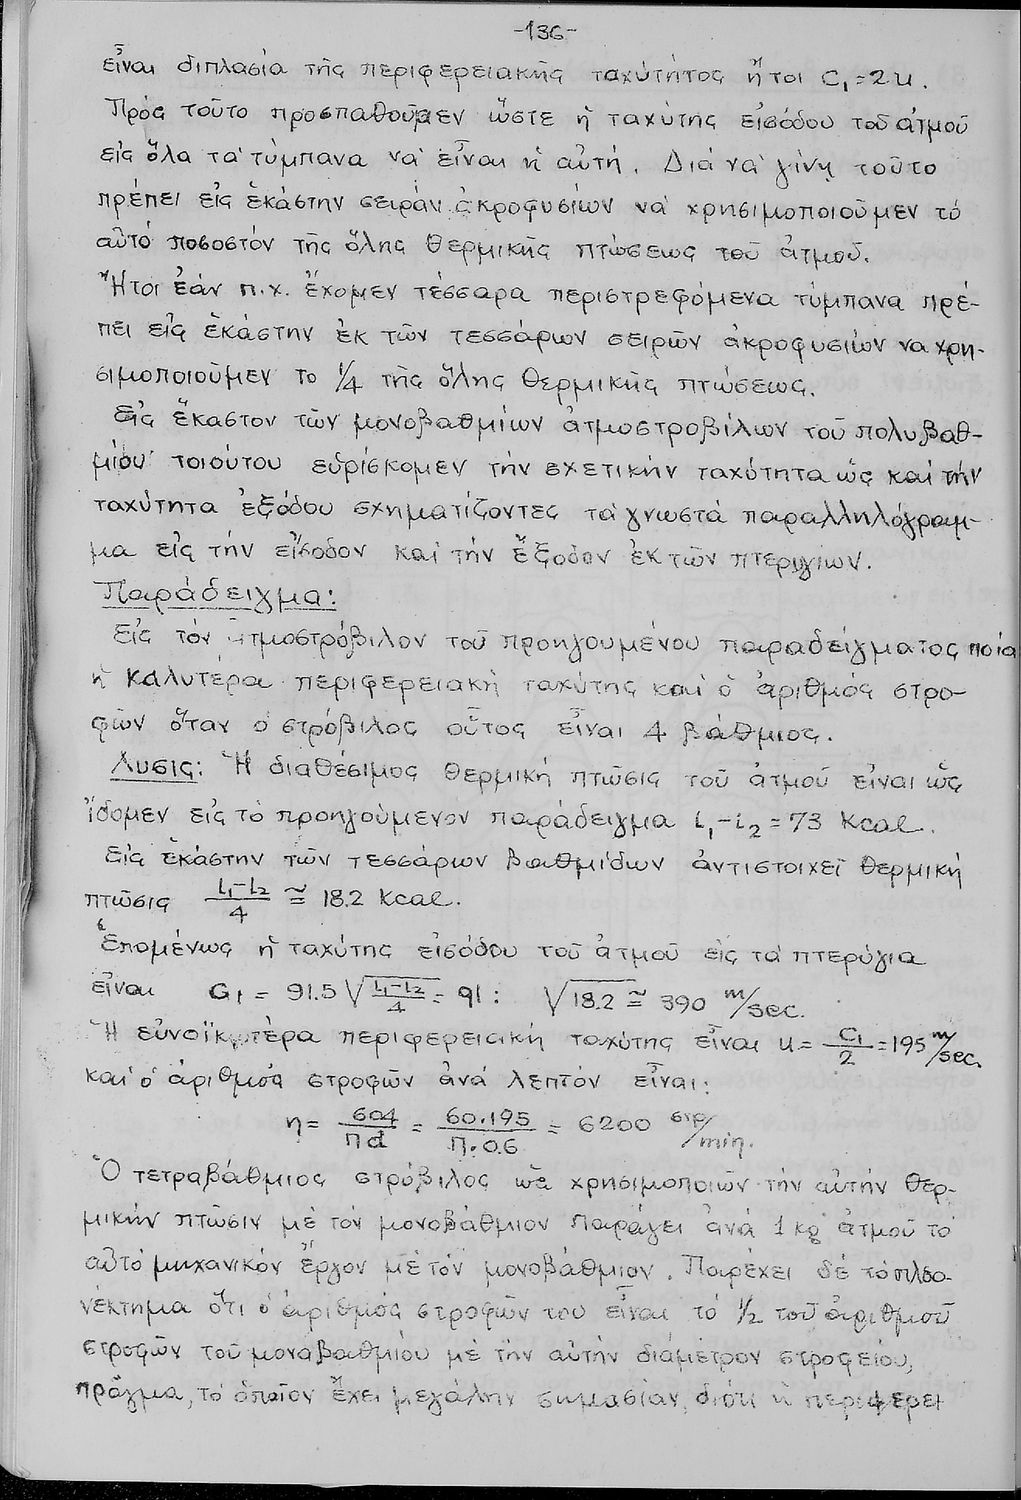 -136-
εἶναι διπλασία τῆς περιφερειακῆς ταχύτητος ἤτοι C₁=2u.
Πρὸς τοῦτο προσπαθοῦμεν ὥστε ἡ ταχύτης εἰσόδου τοῦ ἀτμοῦ
εἰς ὅλα τὰ τύμπανα νὰ εἶναι ἡ αὐτή. Διὰ νὰ γίνῃ τοῦτο
πρέπει εἰς ἑκάστην σειρὰν ἀκροφυσίων νὰ χρησιμοποιοῦμεν τὸ
αὐτὸ ποσοστὸν τῆς ὅλης θερμικῆς πτώσεως τοῦ ἀτμοῦ.
Ἤτοι ἐάν π.χ. ἔχομεν τέσσαρα περιστρεφόμενα τύμπανα πρέ-
πει εἰς ἑκάστην ἐκ τῶν τεσσάρων σειρῶν ἀκροφυσίων να χρη-
σιμοποιοῦμεν το 1/4 τῆς ὅλης θερμικῆς πτώσεως.
Εἰς ἕκαστον τῶν μονοβαθμίων ἀτμοστροβίλων τοῦ πολυβαθ-
μίου τοιούτου εὑρίσκομεν τὴν σχετικὴν ταχύτητα ὡς καὶ τὴν
ταχύτητα ἐξόδου σχηματίζοντες τὰ γνωστὰ παραλληλόγραμ-
μα εἰς τὴν εἴσοδον καὶ τὴν ἔξοδον ἐκ τῶν πτερυγίων.
Παράδειγμα:
Εἰς τὸν ἀτμοστρόβιλον τοῦ προηγουμένου παραδείγματος ποία
ἡ καλυτέρα περιφερειακὴ ταχύτης καὶ ὁ ἀριθμὸς στρο-
φῶν ὅταν ὁ στρόβιλος οὗτος εἶναι 4 βάθμιος.
Λυσις: Ἡ διαθέσιμος θερμικὴ πτῶσις τοῦ ἀτμοῦ εἶναι ὡς
ἴδομεν εἰς τὸ προηγούμενον παράδειγμα i₁-i₂=73 Kcal.
Εἰς ἑκάστην τῶν τεσσάρων βαθμίδων ἀντιστοιχεῖ θερμικὴ
πτῶσις (i₁-i₂)/4 ≅ 18.2 Kcal.
Ἑπομένως ἡ ταχύτης εἰσόδου τοῦ ἀτμοῦ εἰς τὰ πτερύγια
εἶναι C₁ = 91.5 √(i₁-i₂)/4 = 91: √18.2 ≅ 390 m/sec.
Ἡ εὐνοϊκωτέρα περιφερειακὴ ταχύτης εἶναι u = C₁/2 = 195 m/sec.
καὶ ὁ ἀριθμὸς στροφῶν ἀνὰ λεπτὸν εἶναι:
η = 604/Πd = 60.195/Π.0.6 = 6200 στρ/min.
Ὁ τετραβάθμιος στρόβιλος ὡς χρησιμοποιῶν τὴν αὐτὴν θερ-
μικὴν πτῶσιν μὲ τὸν μονοβάθμιον παράγει ἀνὰ 1 kg ἀτμοῦ τὸ
αὐτὸ μηχανικὸν ἔργον μὲ τὸν μονοβάθμιον. Παρέχει δὲ τὸ πλεο-
νέκτημα ὅτι ὁ ἀριθμὸς στροφῶν του εἶναι τὸ 1/2 τοῦ ἀριθμοῦ
στροφῶν τοῦ μονοβαθμίου μὲ τὴν αὐτὴν διάμετρον στροφείου,
πρᾶγμα, τὸ ὁποῖον ἔχει μεγάλην σημασίαν, διότι ἡ περιφερει